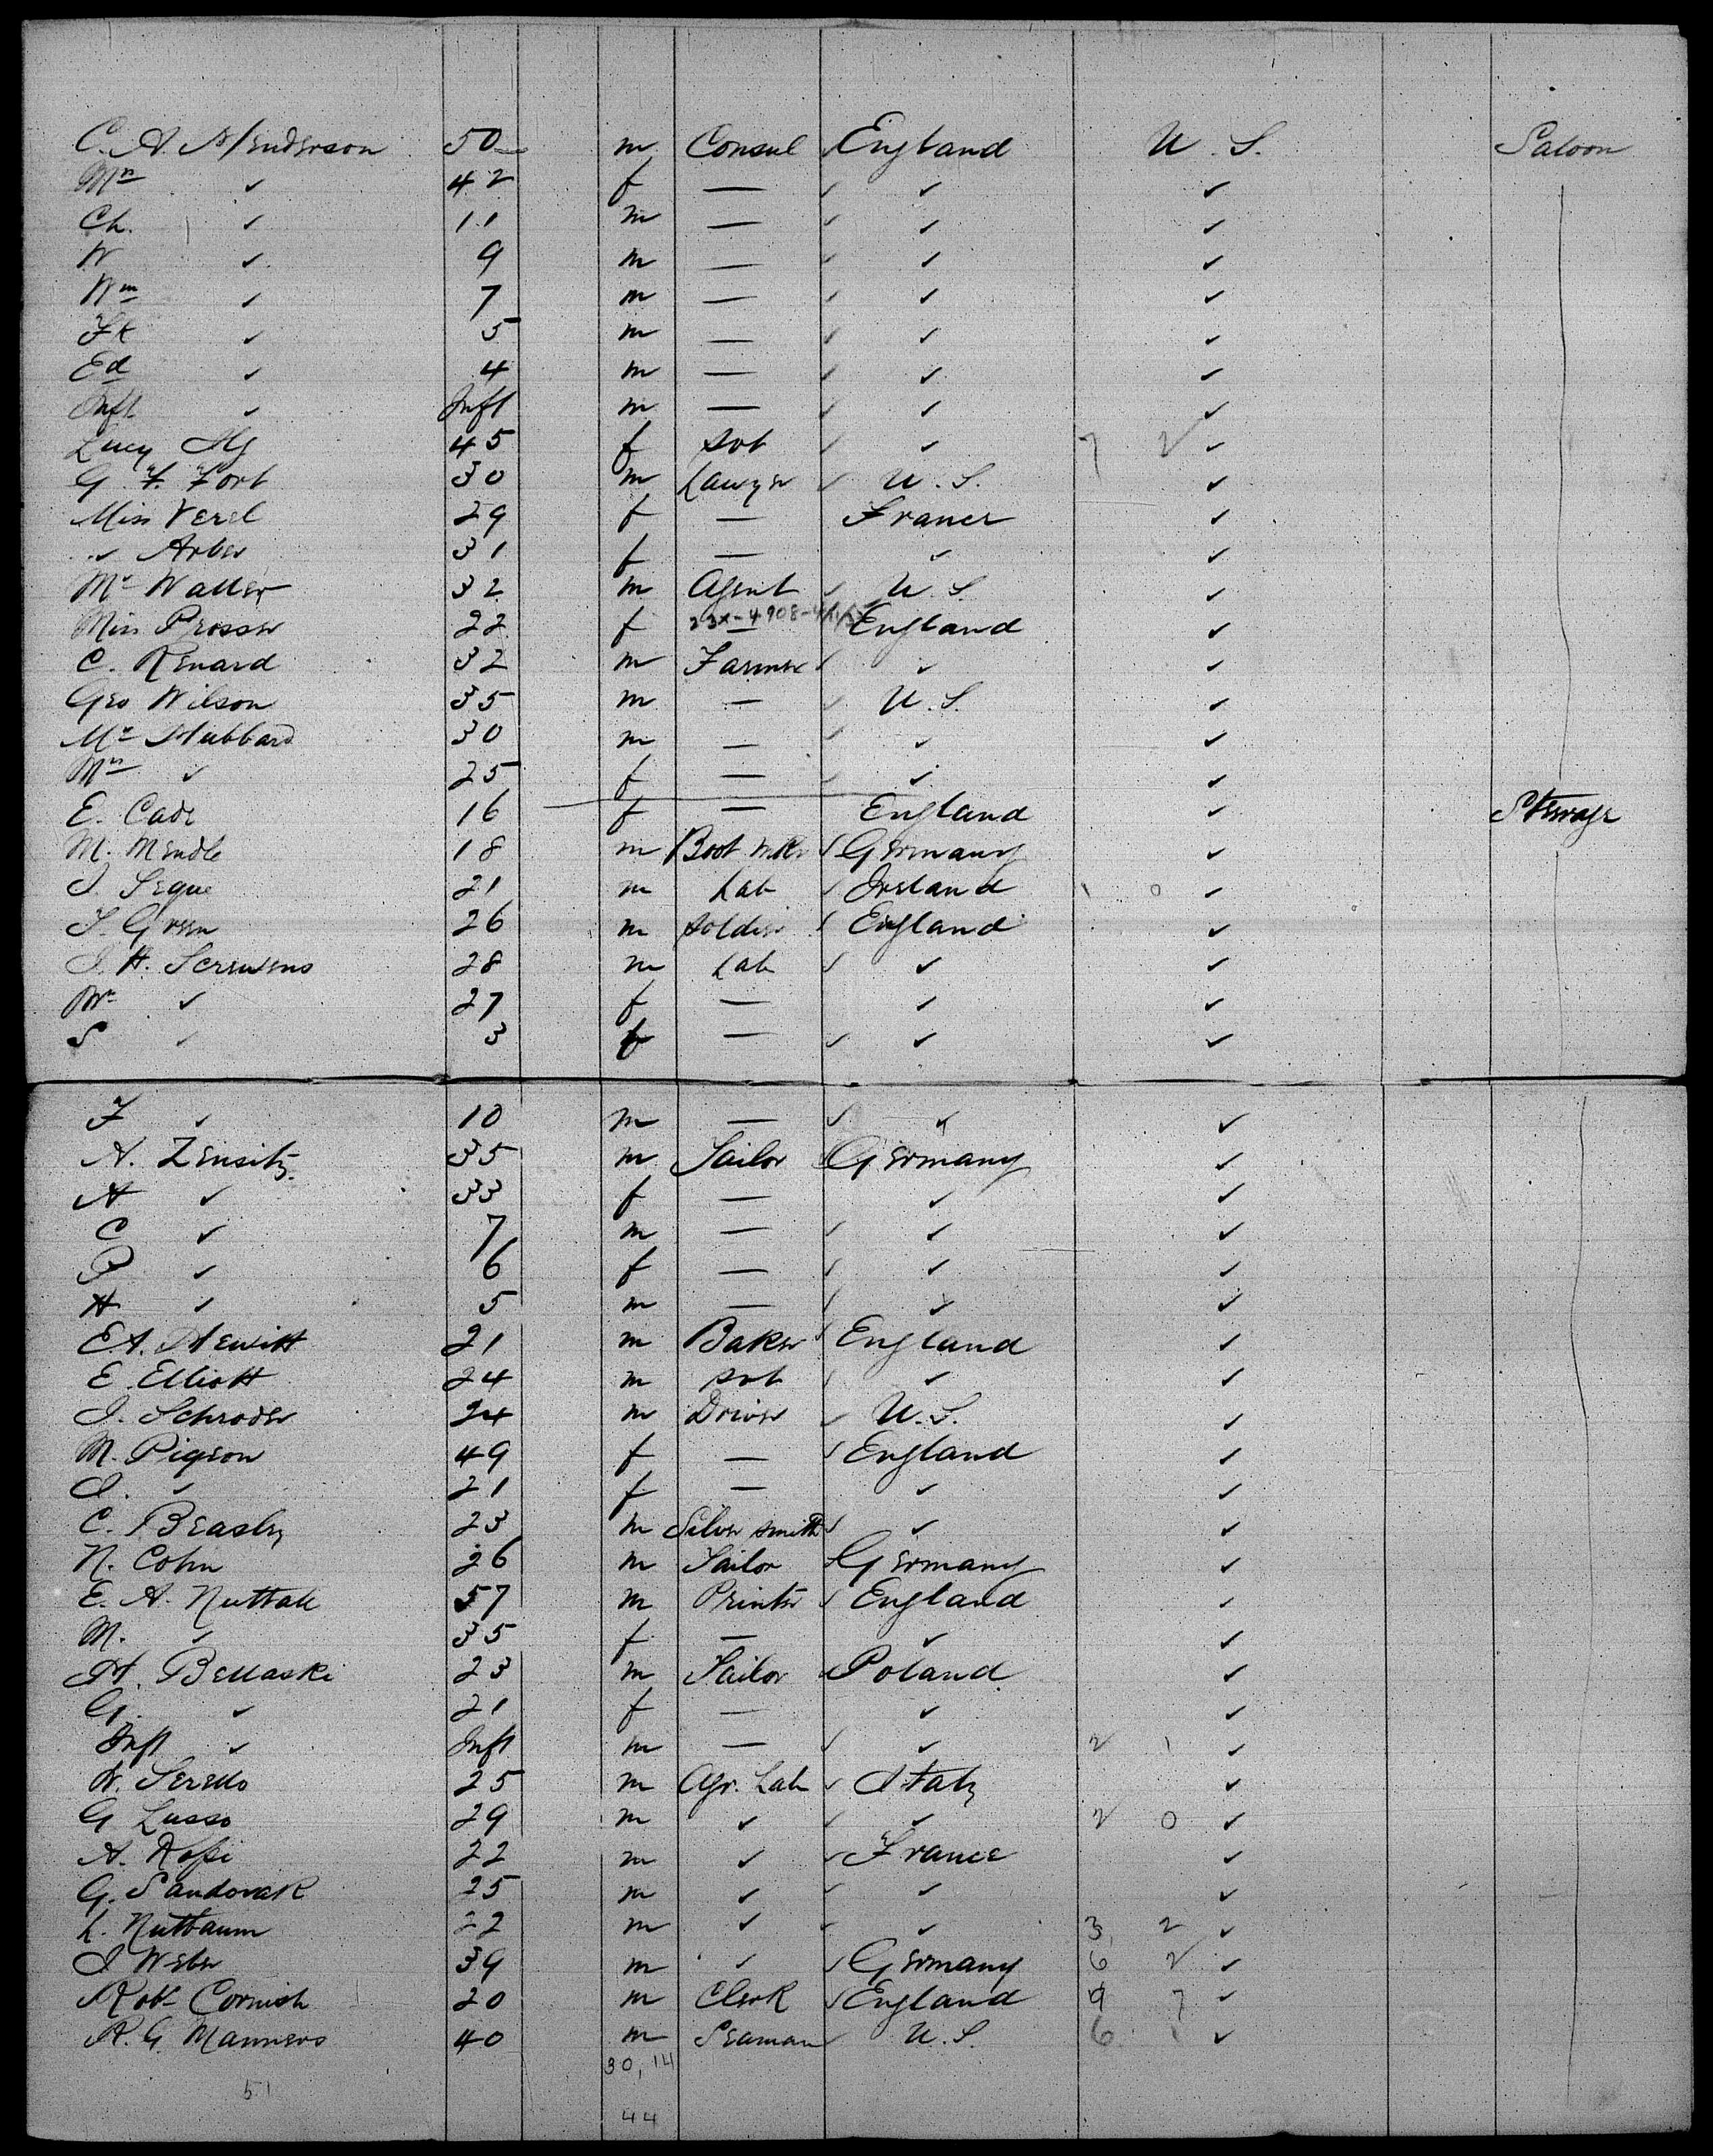 C. A. Henderson 50 m Consul ✓ England U. S. Saloon
Mrs ✓ 42 f — ✓ ✓ ✓
Ch. ✓ 11 m — ✓ ✓ ✓
W ✓ 9 m — ✓ ✓ ✓
Wm ✓ 7 m — ✓ ✓ ✓
Fk ✓ 5 m — ✓ ✓ ✓
Ed ✓ 4 m — ✓ ✓ ✓
Inft ✓ Inft m — ✓ ✓ ✓
Lucy 45 f svt ✓ ✓ 7 2 ✓
G. F. Fort 30 m Lawyer ✓ U. S. ✓
Miss Verel 29 f — France ✓
✓ Arber 31 f — ✓ ✓
Mr Waller 32 m Agent ✓ U. S. ✓
Miss Prosser 22 f — 23x-4908- England ✓
C. Renard 32 m Farmer ✓ ✓ ✓
Geo Wilson 35 m — ✓ U. S. ✓
Mr Hubbard 30 m — ✓ ✓ ✓
Mrs ✓ 25 f — ✓ ✓ ✓
E. Cade 16 f — England ✓ Steerage
M. Mendle 18 m Boot mkr ✓ Germany ✓
J. Segue 21 m Lab ✓ Ireland 1 0 ✓
T. Green 26 m Soldier ✓ England ✓
J. H. Screwens 28 m Lab ✓ ✓ ✓
Mrs ✓ 27 f — ✓ ✓
S ✓ 3 f — ✓ ✓ ✓
F ✓ 10 m — ✓ ✓ ✓
A. Zensitz 35 m Tailor ✓ Germany ✓
A ✓ 33 f — ✓ ✓
C ✓ 7 m — ✓ ✓ ✓
P ✓ 6 f — ✓ ✓ ✓
H ✓ 5 m — ✓ ✓ ✓
E A. Hewitt 21 m Baker ✓ England ✓
E. Elliott 24 m svt ✓ ✓ ✓
J. Schroder 24 m Driver ✓ U. S. ✓
M. Pigeon 49 f — ✓ England ✓
J. ✓ 21 f — ✓ ✓
C. Beasley 23 m Silver smith ✓ ✓ ✓
N. Cohn 26 m Tailor ✓ Germany ✓
E. A. Nuttall 57 m Printer ✓ England ✓
M. ✓ 35 f — ✓ ✓
H. Bellaski 23 m Tailor ✓ Poland ✓
G. ✓ 21 f — ✓ ✓
Inft ✓ Inft m — ✓ ✓ 2 1 ✓
W. Serello 25 m Agr. Lab ✓ Italy ✓
G Lusso 29 m ✓ ✓ ✓ 2 0 ✓
A. Rossi 22 m ✓ ✓ France ✓
G. Sandovak 25 m ✓ ✓ ✓ ✓
L. Nutbaum 22 m ✓ ✓ ✓ 3 2 ✓
J Weber 39 m ✓ ✓ Germany 6 2 ✓
Robt Cornish 20 m Clerk ✓ England 9 7 ✓
R. G. Manners 40 m Seaman ✓ U. S. 6 1 ✓
30, 14
51
44